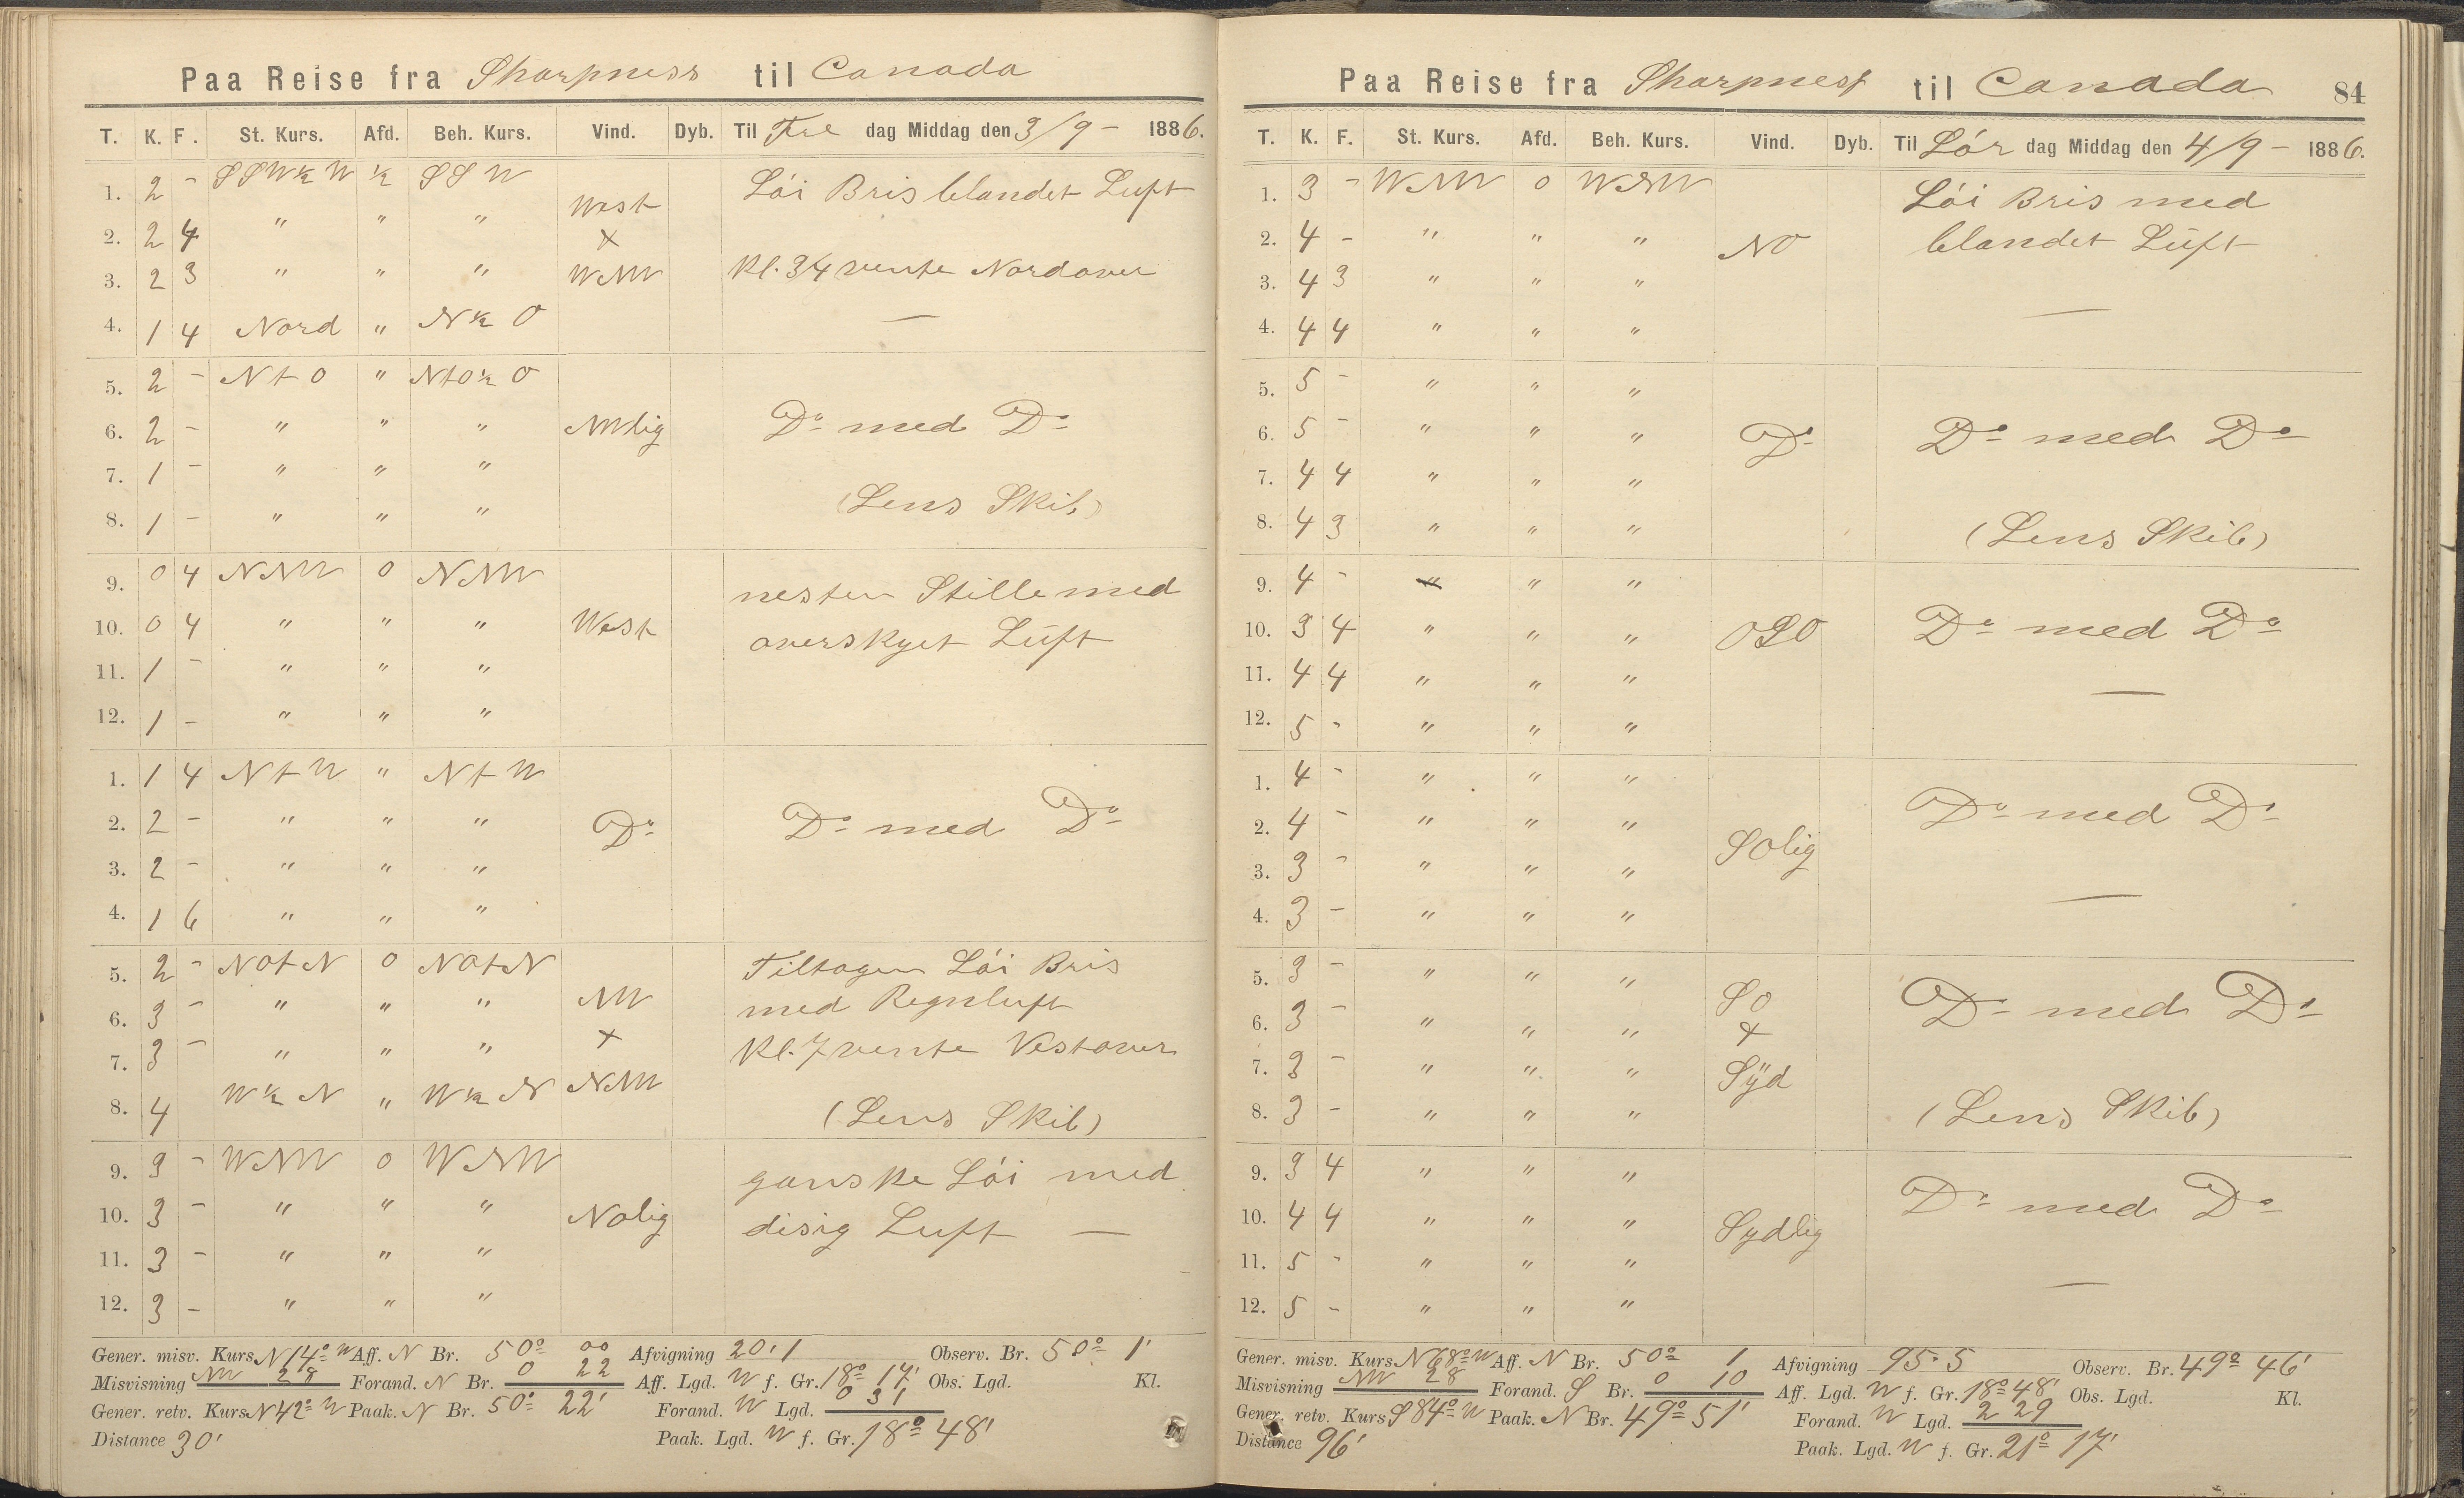 Paa Reise fra Sharpness til Canada
T. K. F. St. Kurs. Afd. Beh. Kurs. Vind. Dyb. Til Fre dag Middag den 3/9 - 1886.
1. 2 - SSW½W ½ SSW West Löi Bris blandet Luft
2. 2 4 " " " +
3. 2 3 " " " WNW Kl. 3 4 vente Nordover
4. 1 4 Nord " N½O —
5. 2 - NtO " NtO½O
6. 2 - " " " NWlig Do med Do
7. 1 - " " "
8. 1 - " " " (Lens Skib)
9. 0 4 NNW 0 NNW nesten Stille med
10. 0 4 " " " West overskyet Luft
11. 1 - " " "
12. 1 - " " "
1. 1 4 NtW " NtW
2. 2 - " " " Do Do med Do
3. 2 - " " "
4. 1 6 " " "
5. 2 - NOtN 0 NOtN Tiltagen Löi Bris
6. 3 - " " " NW med Regnluft
7. 3 - " " " + Kl. 7 vente Vestover
8. 4 W½N " W½N NNW (Lens Skib)
9. 3 - WNW 0 WNW ganske Löi med
10. 3 - " " " NOlig disig Luft —
11. 3 - " " "
12. 3 - " " "
Gener. misv. Kurs N 14° W Aff. N Br. 50° 00 Afvigning 20'1 Observ. Br. 50° 1'
Misvisning NW 28 Forand. N Br. 0 22 Aff. Lgd. W f. Gr. 18° 17' Obs. Lgd. Kl.
Gener. retv. Kurs N 42° W Paak. N Br. 50° 22' Forand. W Lgd. 0 31
Distance 30' Paak. Lgd. W f. Gr. 18° 48'
Paa Reise fra Sharpness til Canada 84
T. K. F. St. Kurs. Afd. Beh. Kurs. Vind. Dyb. Til Lör dag Middag den 4/9 - 1886.
1. 3 - WNW 0 WNW Löi Bris med
2. 4 - " " " NO blandet Luft
3. 4 3 " " "
4. 4 4 " " " —
5. 5 - " " "
6. 5 - " " " Do Do med Do
7. 4 4 " " "
8. 4 3 " " " (Lens Skib)
9. 4 - " " "
10. 3 4 " " " OSO Do med Do
11. 4 4 " " " —
12. 5 - " " "
1. 4 - " " "
2. 4 - " " " SOlig Do med Do
3. 3 - " " "
4. 3 - " " " —
5. 3 - " " " SO Do med Do
6. 3 - " " " +
7. 3 - " " " Syd
8. 3 - " " " (Lens Skib)
9. 3 4 " " "
10. 4 4 " " " Sydlig Do med Do
11. 5 - " " "
12. 5 - " " " —
Gener. misv. Kurs N 68° W Aff. N Br. 50° 1 Afvigning 95.5 Observ. Br. 49° 46'
Misvisning NW 28 Forand. S Br. 0 10 Aff. Lgd. W f. Gr. 18° 48' Obs. Lgd. Kl.
Gener. retv. Kurs S 84° W Paak. N Br. 49° 51' Forand. W Lgd. 2 29
Distance 96' Paak. Lgd. W f. Gr. 21° 17'